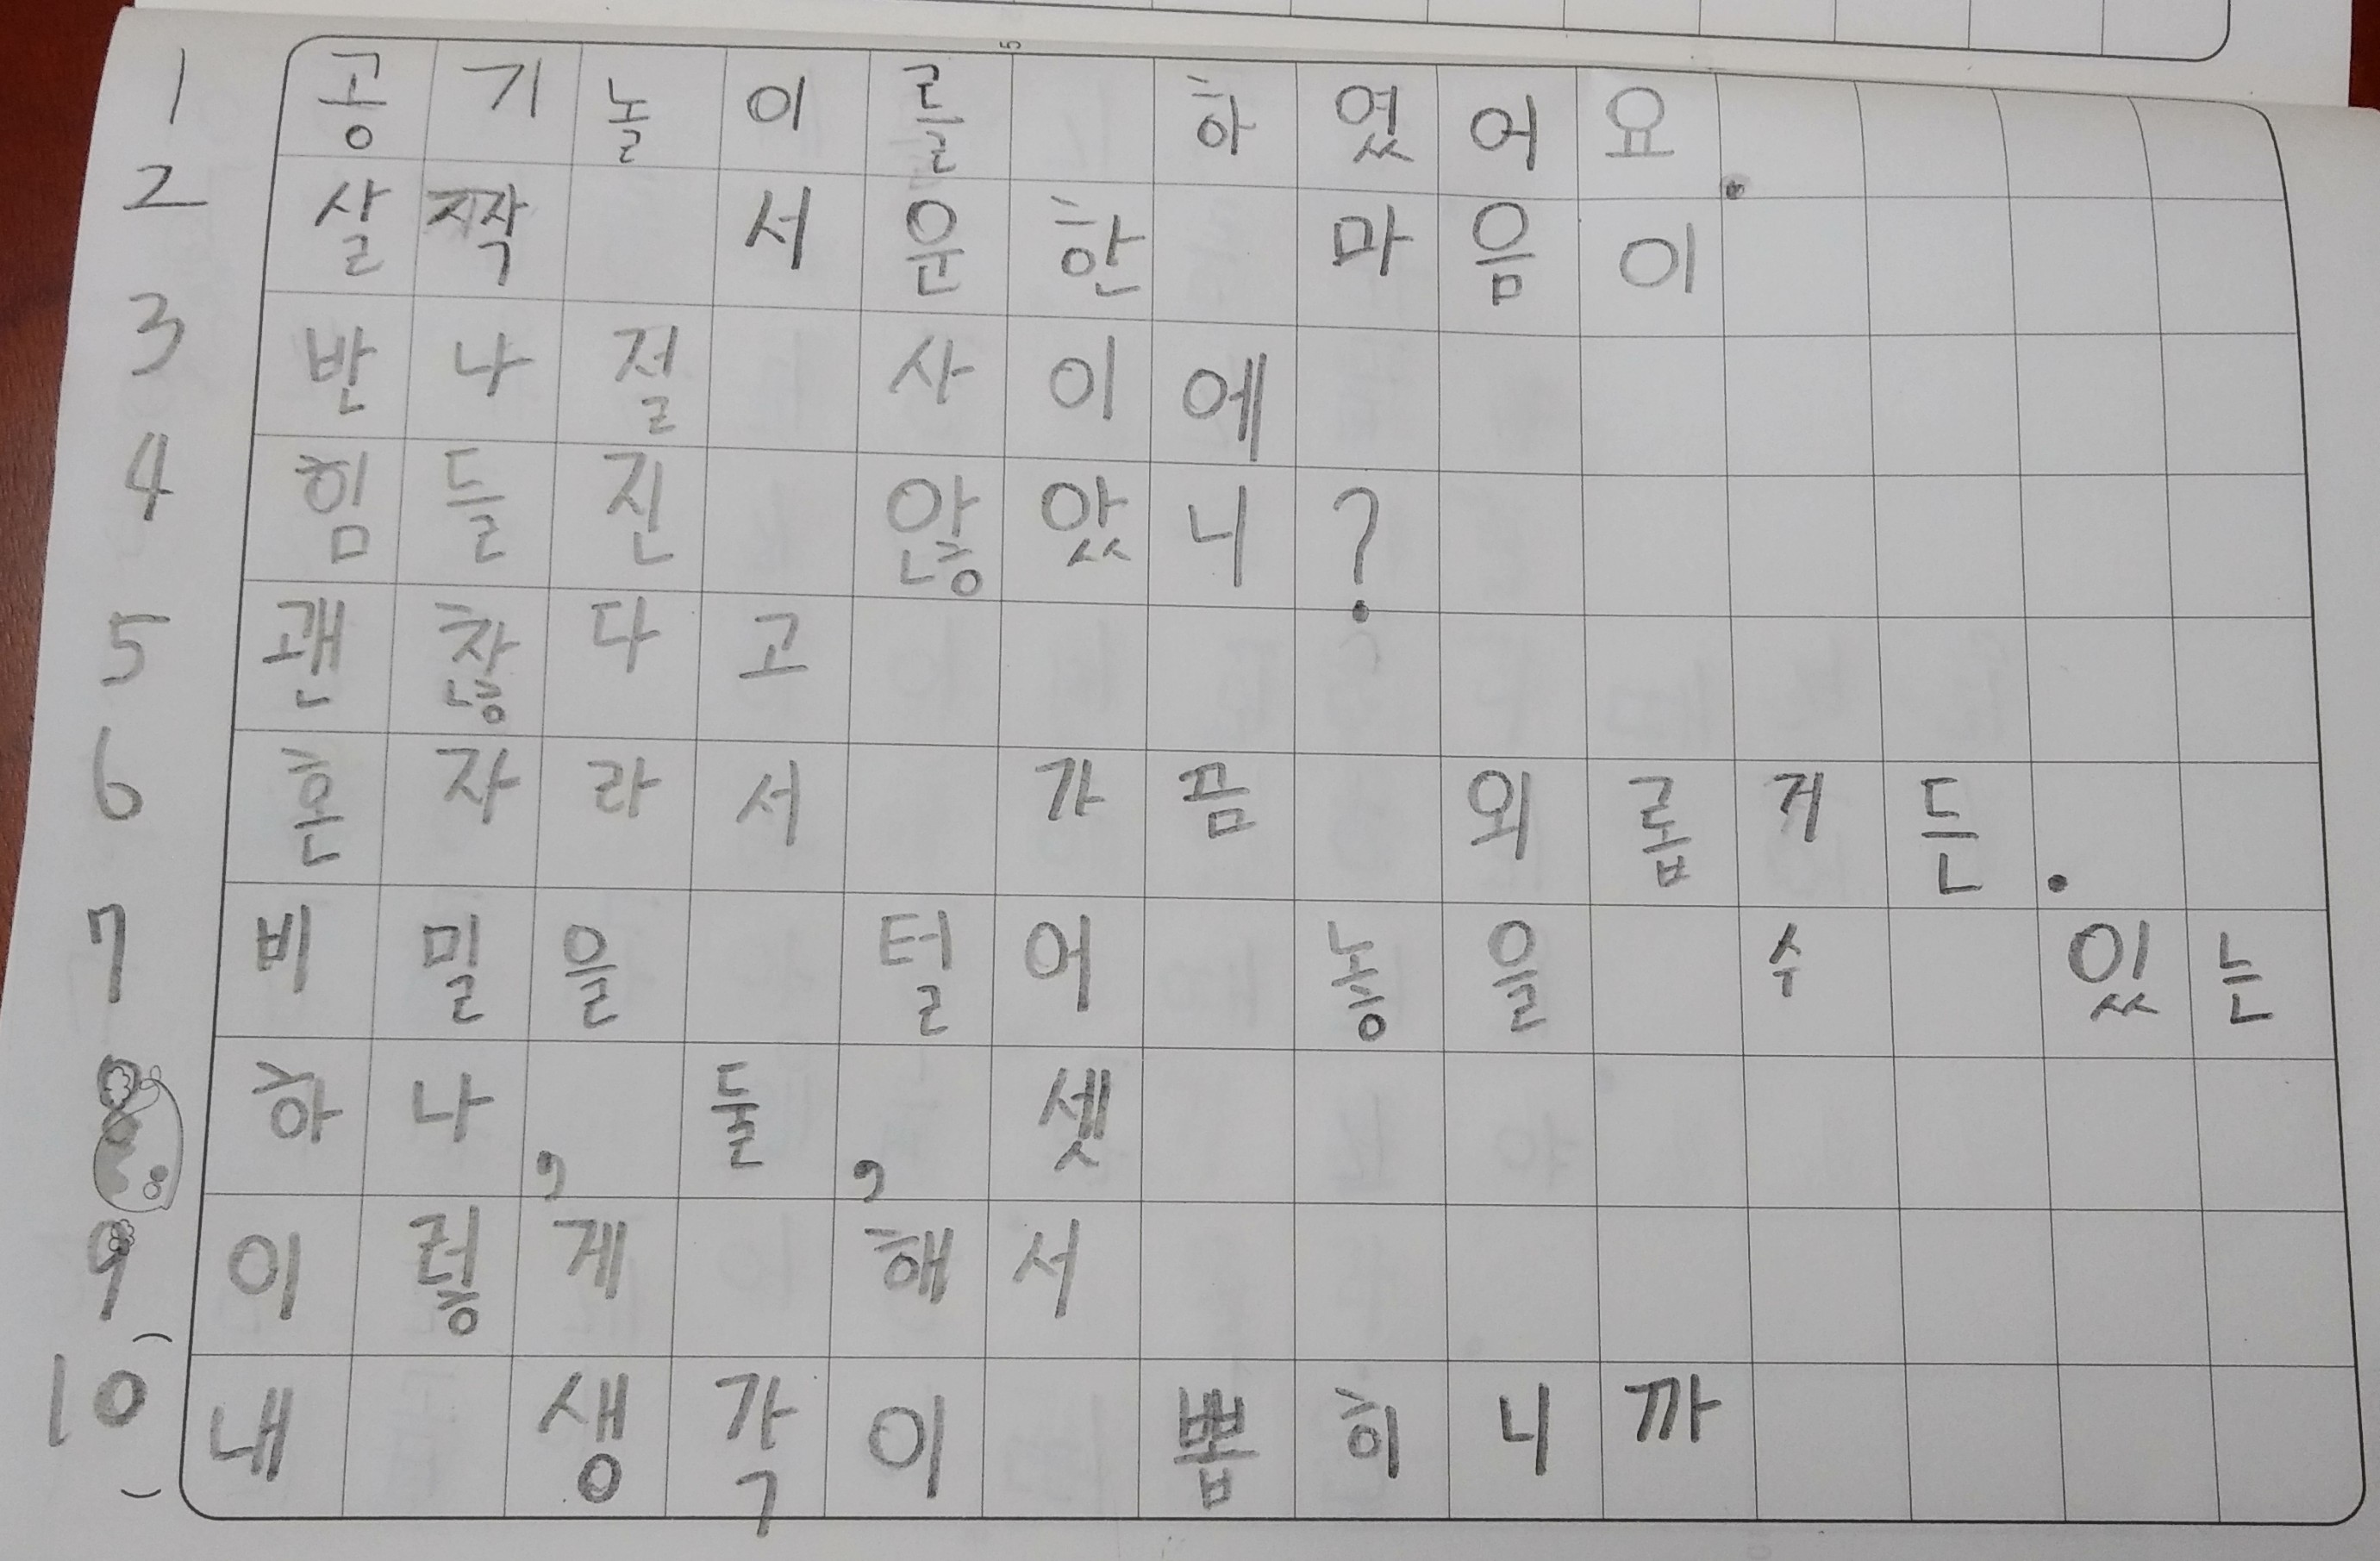 1 공기놀이를 하였어요.
2 살짝 서운한 마음이
3 반나절 사이에
4 힘들진 않았니?
5 괜찮다고
6 혼자라서 가끔 외롭게든.
7 비밀을 털어 놓을 수 있는
8 하나, 둘, 셋
9 이렇게 해서
10 내 생각이 뽑히니까